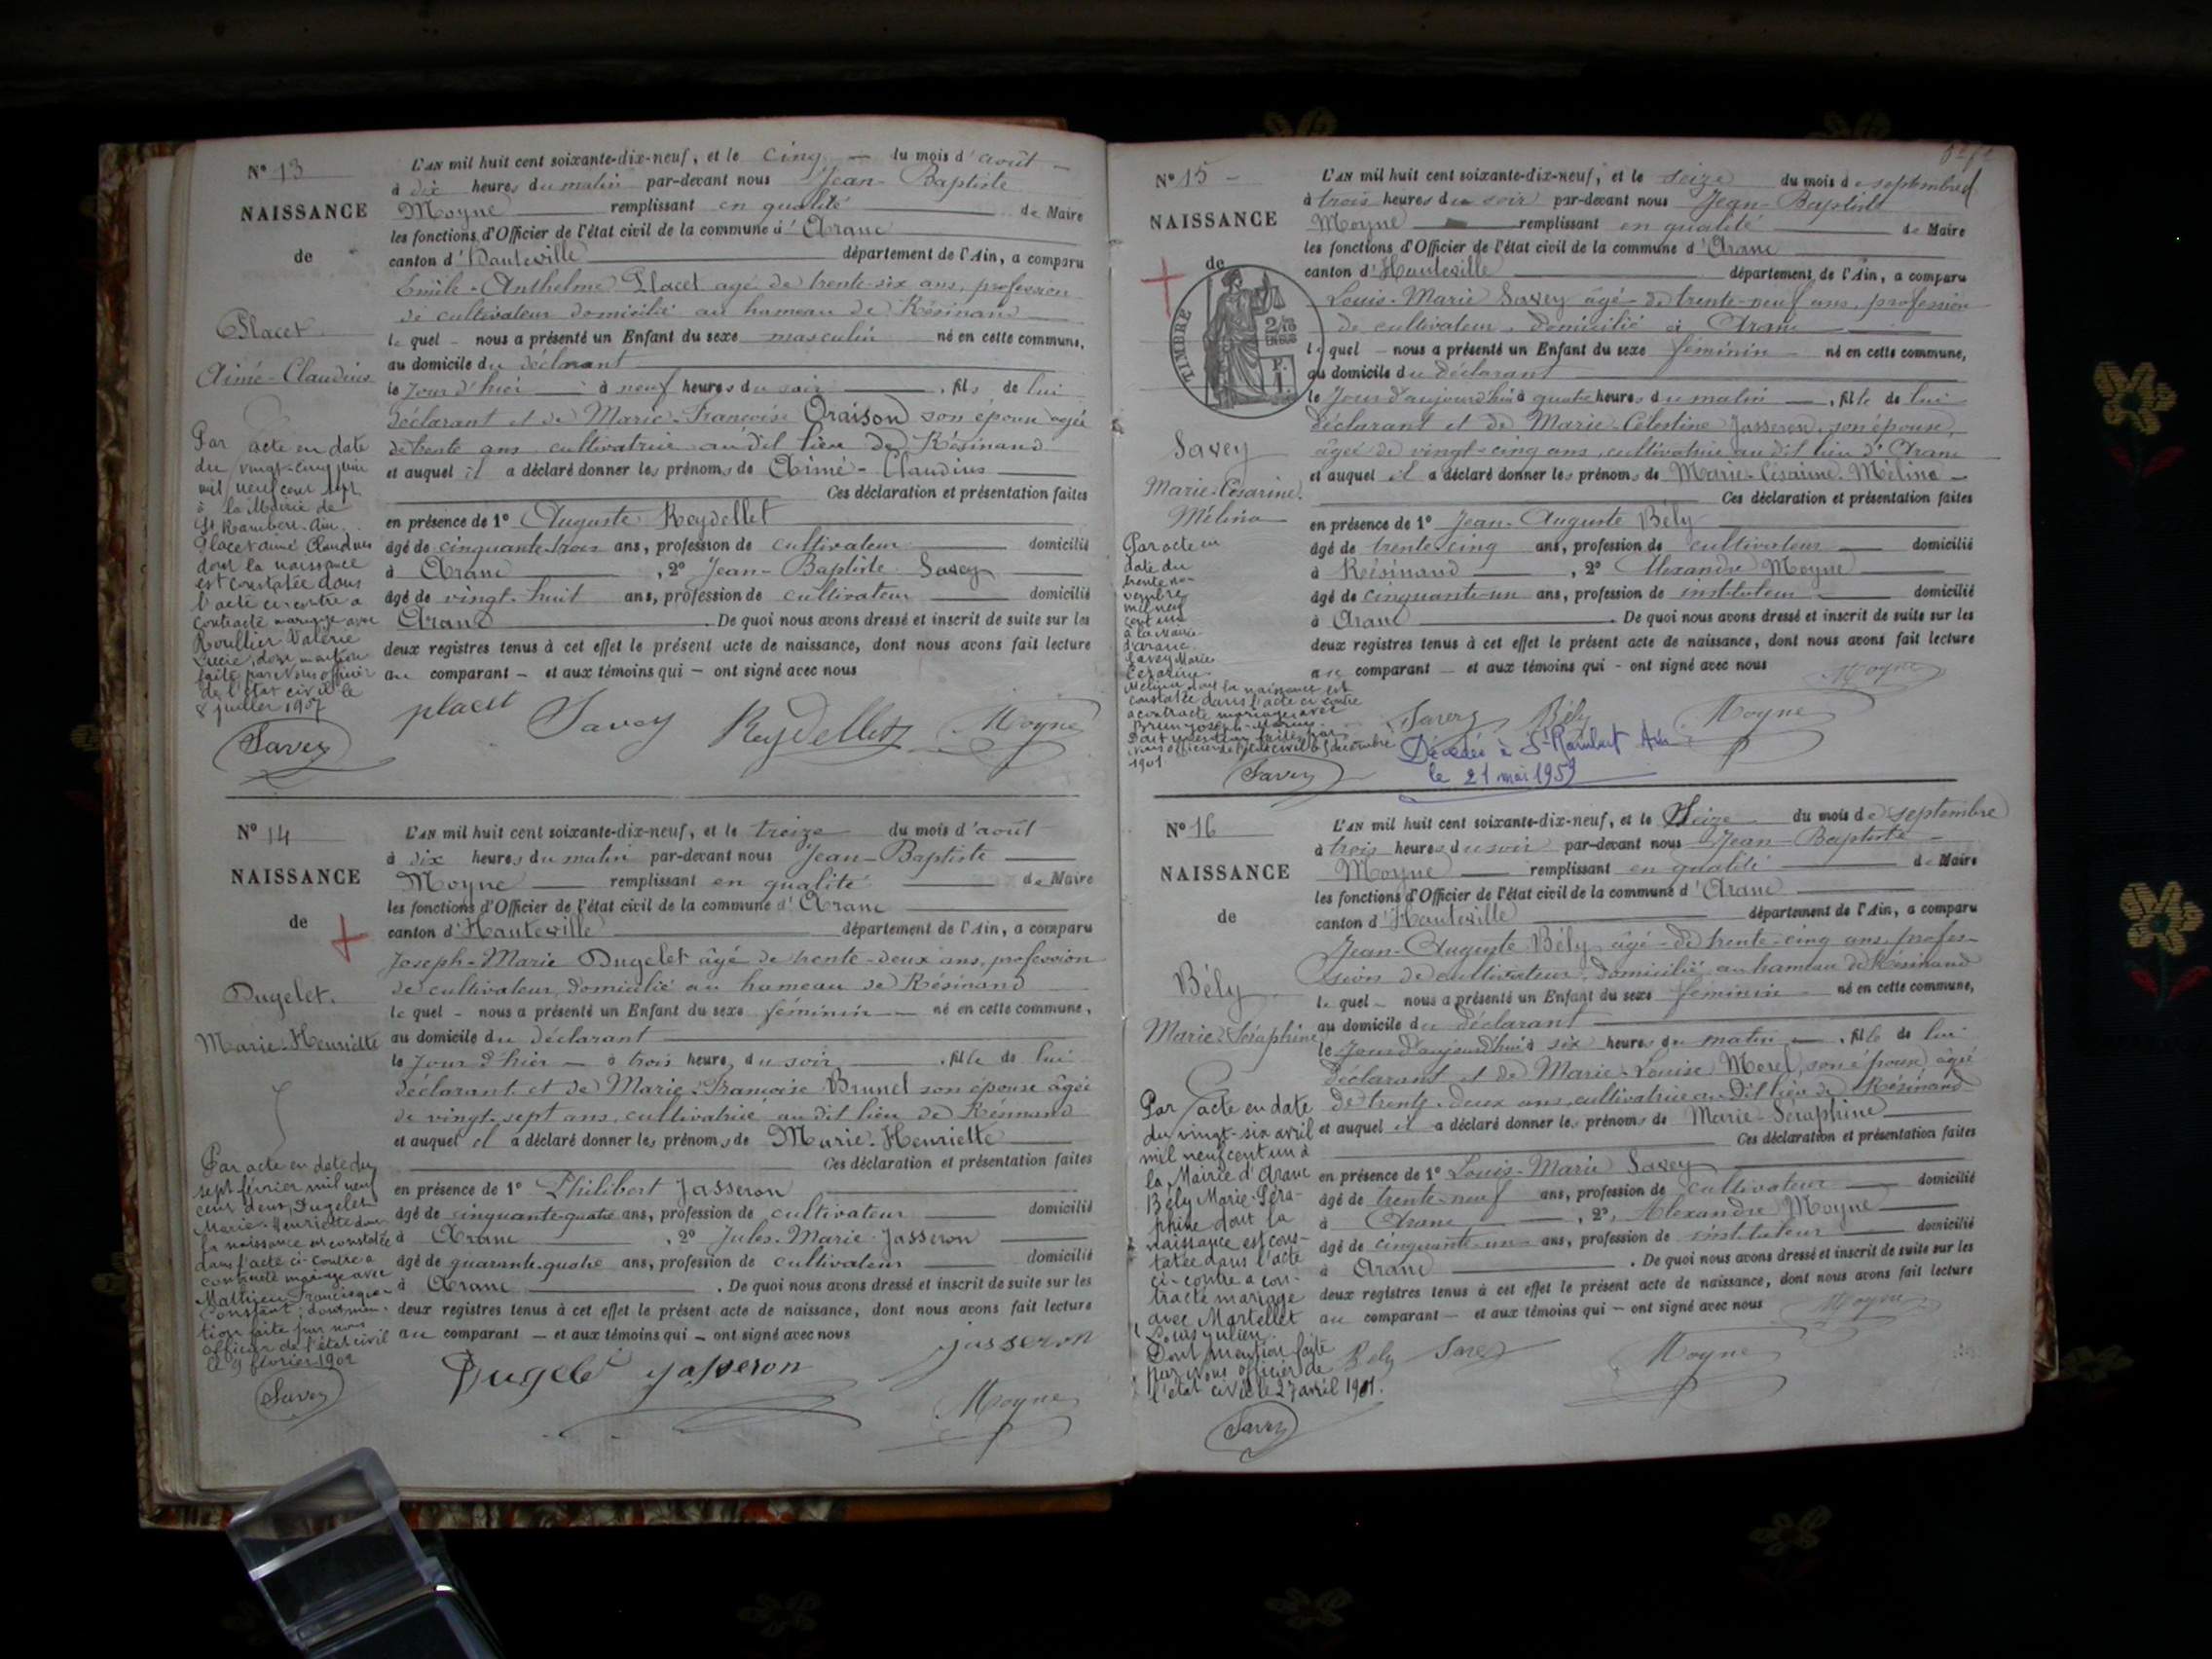 N° 13
NAISSANCE
de
Placet
Aimé-Claudius
Par acte en date
du vingt-cinq juin
mil neuf cent sept
à la Mairie de
St Rambert-Ain
Placet aimé Claudius
dont la naissance
est constatée dans
l'acte ci-contre a
contracté mariage avec
Roullier Valérie
Lucie, dont mention
faite par Nous officier
de l'état civil le
8 juillet 1907
Savey
L'AN mil huit cent soixante-dix-neuf, et le cinq du mois d'août
à dix heures du matin par-devant nous Jean-Baptiste
Moyne remplissant en qualité de Maire
les fonctions d'Officier de l'état civil de la commune d'Aranc
canton d'Hauteville département de l'Ain, a comparu
Emile-Anthelme Placet agé de trente-six ans, profession
de cultivateur domicilié au hameau de Résinand
lequel nous a présenté un Enfant du sexe masculin né en cette commune,
au domicile du déclarant
le jour d'hier à neuf heures du soir, fils de lui
déclarant et de Marie-Françoise Oraison son épouse agée
de trente ans, cultivatrice au dit lieu de Résinand
et auquel il a déclaré donner les prénoms de Aimé-Claudius
Ces déclaration et présentation faites
en présence de 1° Auguste Reydellet
âgé de cinquante-trois ans, profession de cultivateur domicilié
à Aranc, 2° Jean-Baptiste Savey
âgé de vingt-huit ans, profession de cultivateur domicilié
Aranc. De quoi nous avons dressé et inscrit de suite sur les
deux registres tenus à cet effet le présent acte de naissance, dont nous avons fait lecture
au comparant et aux témoins qui ont signé avec nous
placet Savey Reydellet Moyne
N° 14
NAISSANCE
de
Dugelet
Marie-Henriette
Par acte en date du
sept février mil neuf
cent deux, Dugelet
Marie-Henriette dont
la naissance est constatée
dans l'acte ci-contre a
contracté mariage avec
Mathieu Francisque
Constant; dont men-
tion faite par nous
officier de l'état civil
le 9 février 1902
Savey
L'AN mil huit cent soixante-dix-neuf, et le treize du mois d'août
à dix heures du matin par-devant nous Jean-Baptiste
Moyne remplissant en qualité de Maire
les fonctions d'Officier de l'état civil de la commune d'Aranc
canton d'Hauteville département de l'Ain, a comparu
Joseph-Marie Dugelet âgé de trente-deux ans, profession
de cultivateur, domicilié au hameau de Résinand
lequel nous a présenté un Enfant du sexe féminin né en cette commune,
au domicile du déclarant
le jour d'hier à trois heures du soir, fille de lui
déclarant et de Marie-Françoise Brunet son épouse âgée
de vingt-sept ans, cultivatrice au dit lieu de Résinand
et auquel il a déclaré donner les prénoms de Marie-Henriette
Ces déclaration et présentation faites
en présence de 1° Philibert Jasseron
âgé de cinquante-quatre ans, profession de cultivateur domicilié
à Aranc, 2° Jules-Marie Jasseron
âgé de quarante-quatre ans, profession de cultivateur domicilié
à Aranc. De quoi nous avons dressé et inscrit de suite sur les
deux registres tenus à cet effet le présent acte de naissance, dont nous avons fait lecture
au comparant et aux témoins qui ont signé avec nous
Dugelet jasseron jasseron
Moyne
N° 15
NAISSANCE
de
TIMBRE
Savey
Marie-Césarine
Mélina
Par acte en
date du
trente no-
vembre
mil neuf
cent un
à la Mairie
d'Aranc
Savey Marie
Césarine
Mélina dont la naissance est
constatée dans l'acte ci-contre
a contracté mariage avec
Brun Joseph-Marius
Dont mention faite par
Nous officier de l'état civil le décembre
1901
Savey
L'AN mil huit cent soixante-dix-neuf, et le seize du mois de septembre
à trois heures du soir par-devant nous Jean-Baptiste
Moyne remplissant en qualité de Maire
les fonctions d'Officier de l'état civil de la commune d'Aranc
canton d'Hauteville département de l'Ain, a comparu
Louis-Marie Savey âgé de trente-neuf ans, profession
de cultivateur, domicilié à Aranc
lequel nous a présenté un Enfant du sexe féminin né en cette commune,
au domicile du déclarant
le jour d'aujourd'hui à quatre heures du matin, fille de lui
déclarant et de Marie-Célestine Jasseron, son épouse,
âgée de vingt-cinq ans, cultivatrice au dit lieu d'Aranc
et auquel il a déclaré donner les prénoms de Marie-Césarine-Mélina
Ces déclaration et présentation faites
en présence de 1° Jean-Auguste Bély
âgé de trente-cinq ans, profession de cultivateur domicilié
à Résinand, 2° Alexandre Moyne
âgé de cinquante-un ans, profession de instituteur domicilié
à Aranc. De quoi nous avons dressé et inscrit de suite sur les
deux registres tenus à cet effet le présent acte de naissance, dont nous avons fait lecture
au comparant et aux témoins qui ont signé avec nous Moyne
Savey Bély Moyne
Décédée à St Rambert Ain
le 21 mai 1959
N° 16
NAISSANCE
de
Bély
Marie-Séraphine
Par acte en date
du vingt-six avril
mil neuf cent un à
la Mairie d'Aranc
Bély Marie-Séra-
phine dont la
naissance est cons-
tatée dans l'acte
ci-contre a con-
tracté mariage
avec Martellet
Louis Julien.
Dont mention faite
par Nous officier de
l'état civil le 27 avril 1901.
Savey
L'AN mil huit cent soixante-dix-neuf, et le Seize du mois de septembre
à trois heures du soir par-devant nous Jean-Baptiste
Moyne remplissant en qualité de Maire
les fonctions d'Officier de l'état civil de la commune d'Aranc
canton d'Hauteville département de l'Ain, a comparu
Jean-Auguste Bély âgé de trente-cinq ans, profes-
sion de cultivateur, domicilié au hameau de Résinand
lequel nous a présenté un Enfant du sexe féminin né en cette commune,
au domicile du déclarant
le jour d'aujourd'hui à six heures du matin, fille de lui
déclarant et de Marie-Louise Morel, son épouse, agée
de trente-deux ans, cultivatrice au dit lieu de Résinand
et auquel il a déclaré donner les prénoms de Marie-Séraphine
Ces déclaration et présentation faites
en présence de 1° Louis-Marie Savey
âgé de trente-neuf ans, profession de cultivateur domicilié
à Aranc, 2°, Alexandre Moyne
âgé de cinquante-un ans, profession de instituteur domicilié
à Aranc. De quoi nous avons dressé et inscrit de suite sur les
deux registres tenus à cet effet le présent acte de naissance, dont nous avons fait lecture
au comparant et aux témoins qui ont signé avec nous Moyne
Bély Savey Moyne